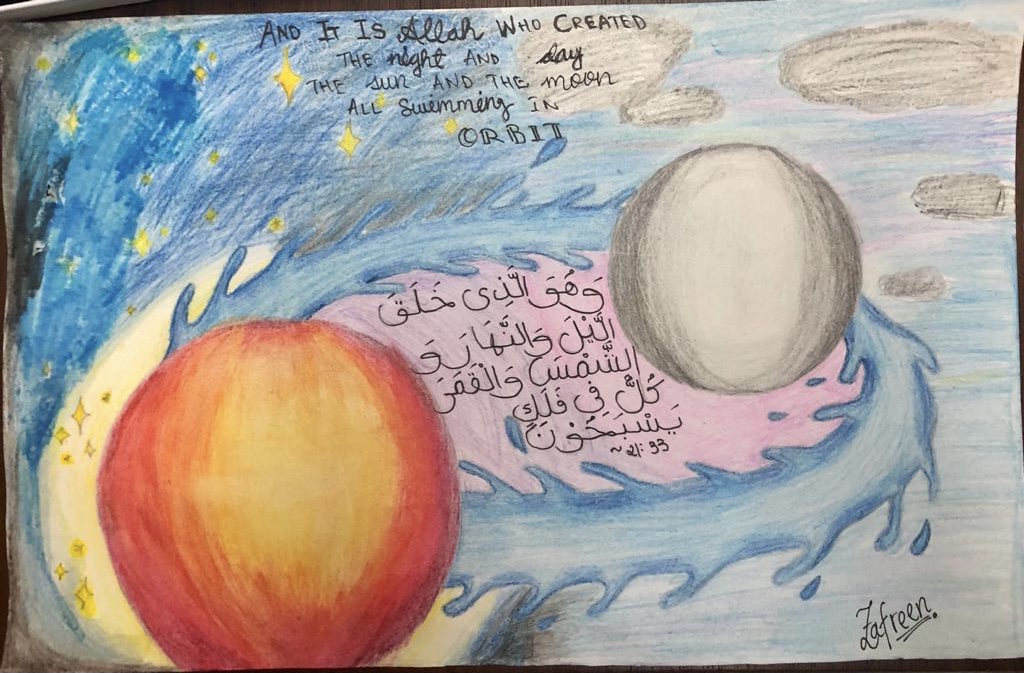 AND IT IS Allah WHO CREATED
THE night AND day
THE sun AND THE moon
ALL swimming IN
ORBIT
وَهُوَ الَّذِى خَلَقَ
الَّيْلَ وَالنَّهَارَ وَ
الشَّمْسَ وَالْقَمَرَ
كُلٌّ فِى فَلَكٍ
يَسْبَحُوْنَ
~ 21:33
Zafreen.